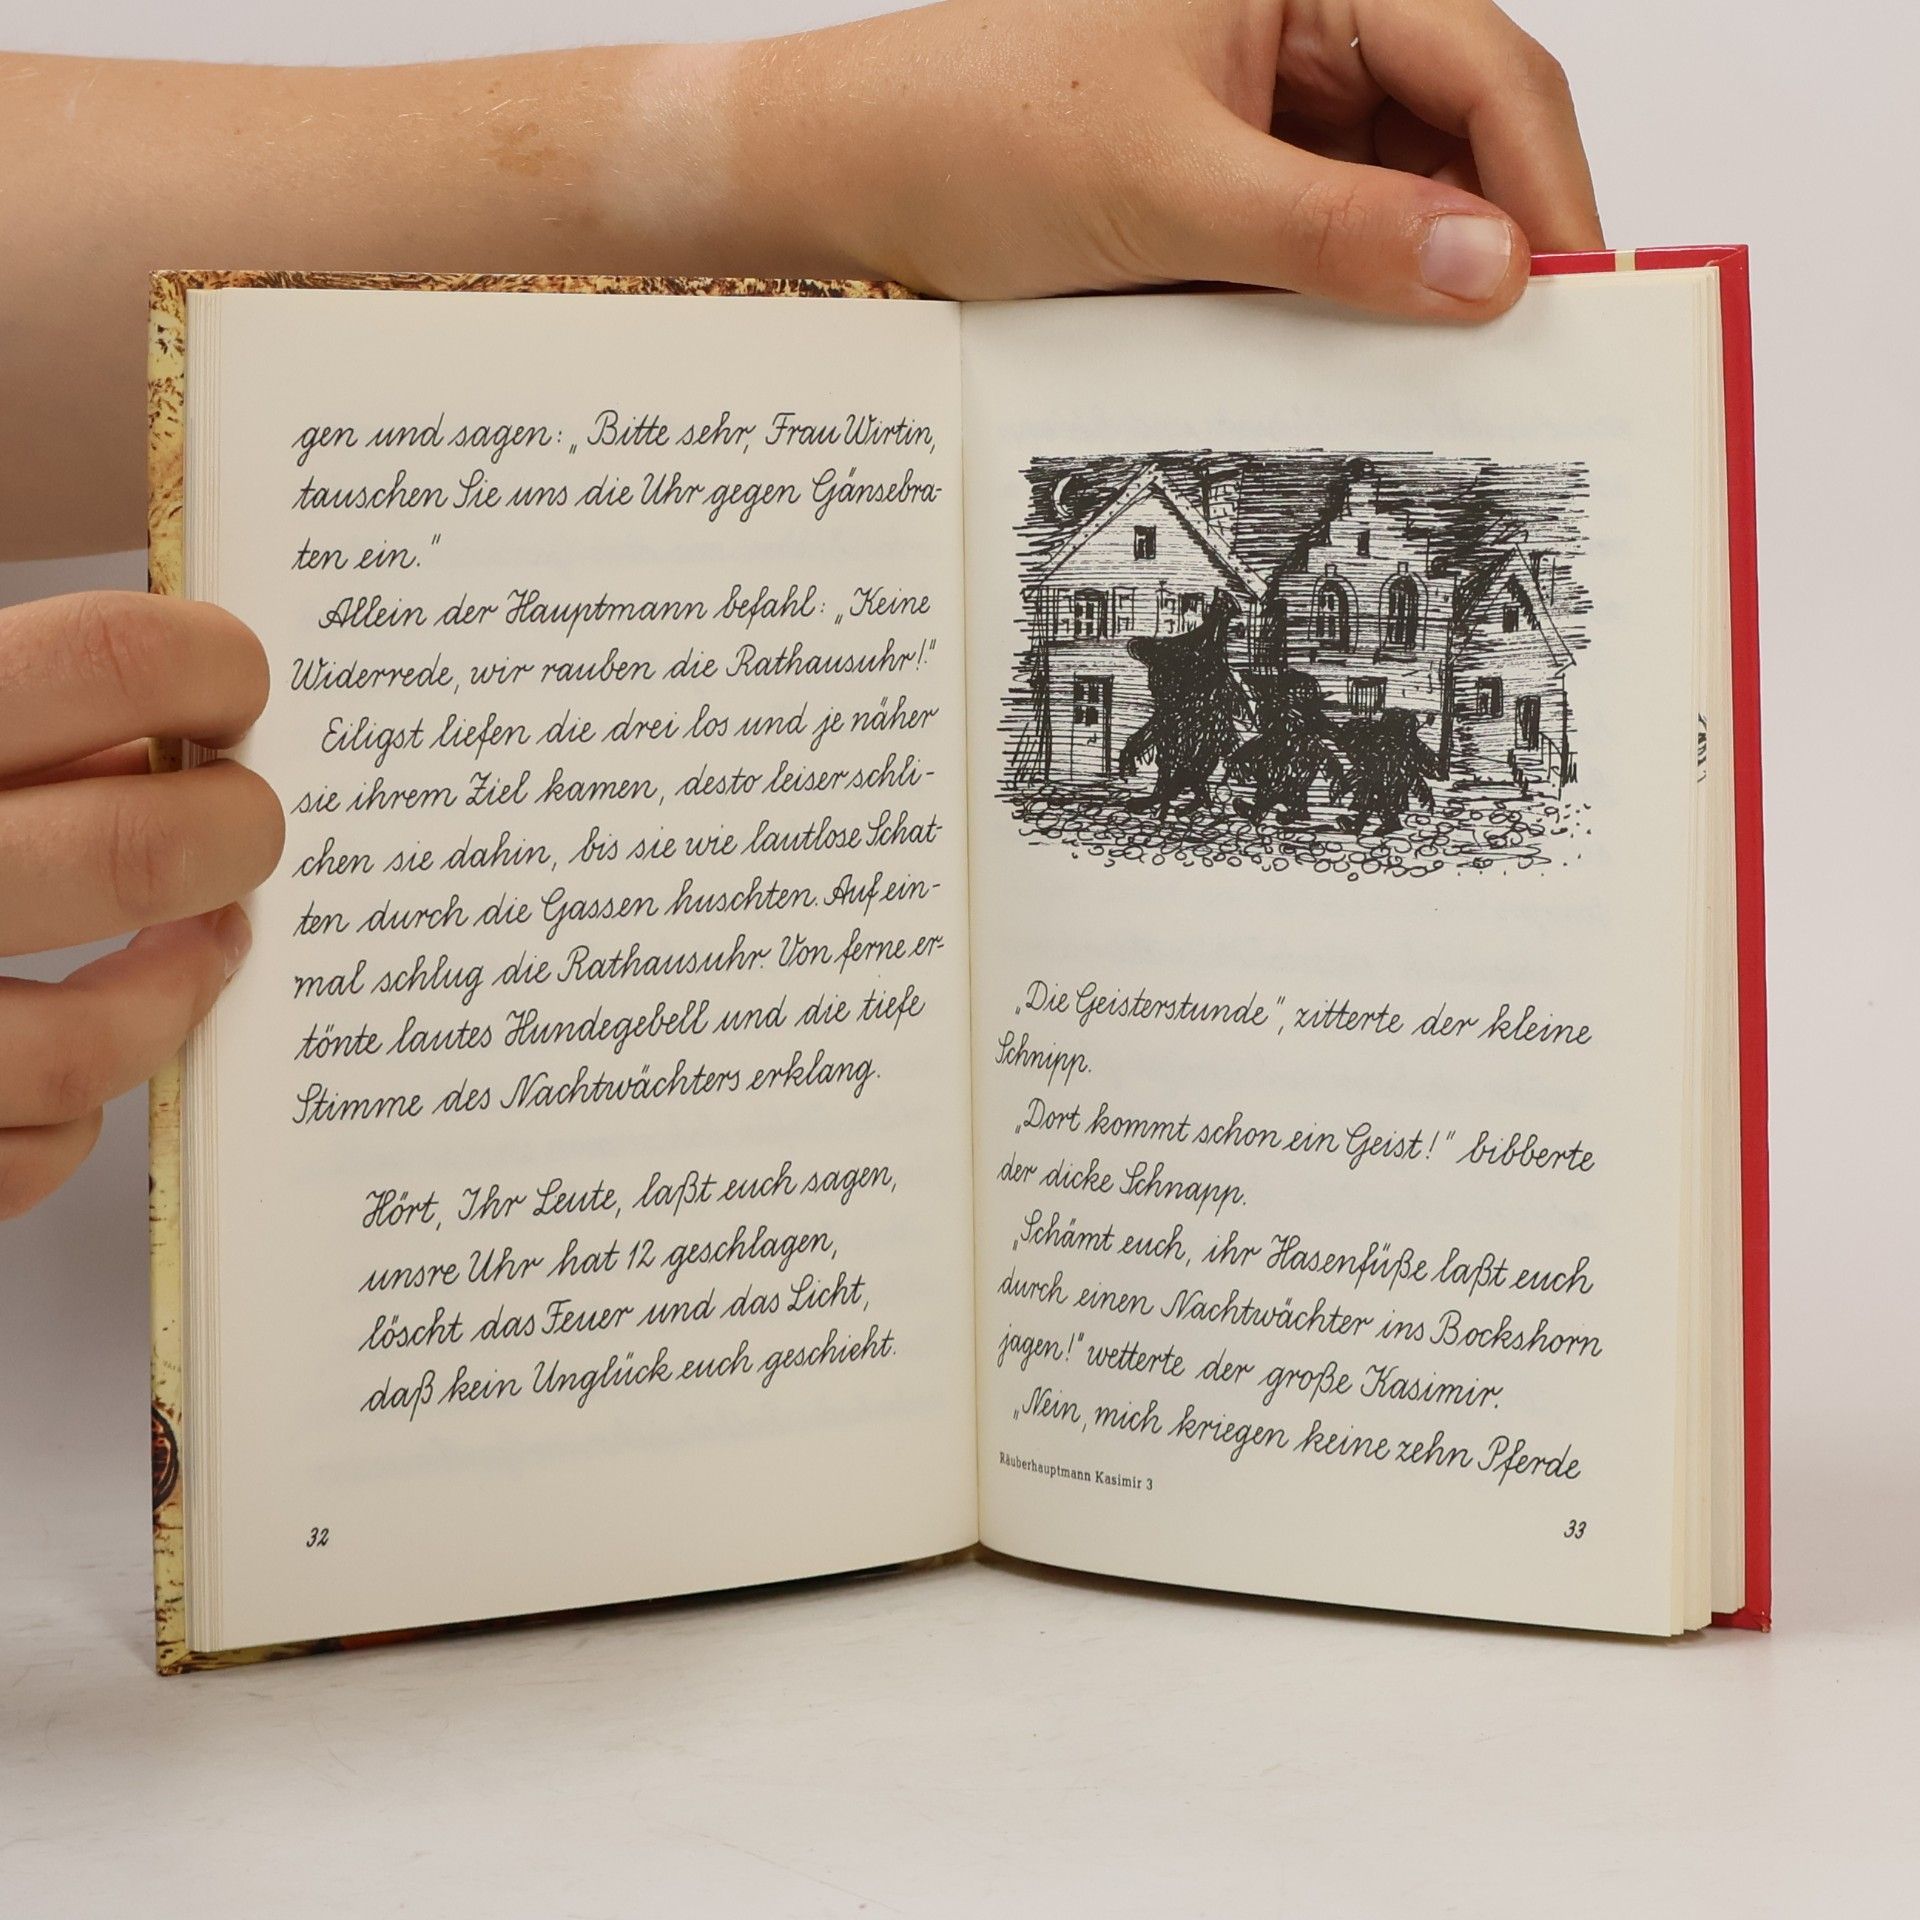 gen und sagen: „Bitte sehr, Frau Wirtin,
tauschen Sie uns die Uhr gegen Gänsebra-
ten ein."
Allein der Hauptmann befahl: „Keine
Widerrede, wir rauben die Rathausuhr!"
Eiligst liefen die drei los und je näher
sie ihrem Ziel kamen, desto leiser schli-
chen sie dahin, bis sie wie lautlose Schat-
ten durch die Gassen huschten. Auf ein-
mal schlug die Rathausuhr. Von ferne er-
tönte lautes Hundegebell und die tiefe
Stimme des Nachtwächters erklang.
Hört, Ihr Leute, laßt euch sagen,
unsre Uhr hat 12 geschlagen,
löscht das Feuer und das Licht,
daß kein Unglück euch geschieht.
32
„Die Geisterstunde", zitterte der kleine
Schnipp.
„Dort kommt schon ein Geist!" bibberte
der dicke Schnapp.
„Schämt euch, ihr Hasenfüße laßt euch
durch einen Nachtwächter ins Bockshorn
jagen!" wetterte der große Kasimir.
„Nein, mich kriegen keine zehn Pferde
Räuberhauptmann Kasimir 3
33